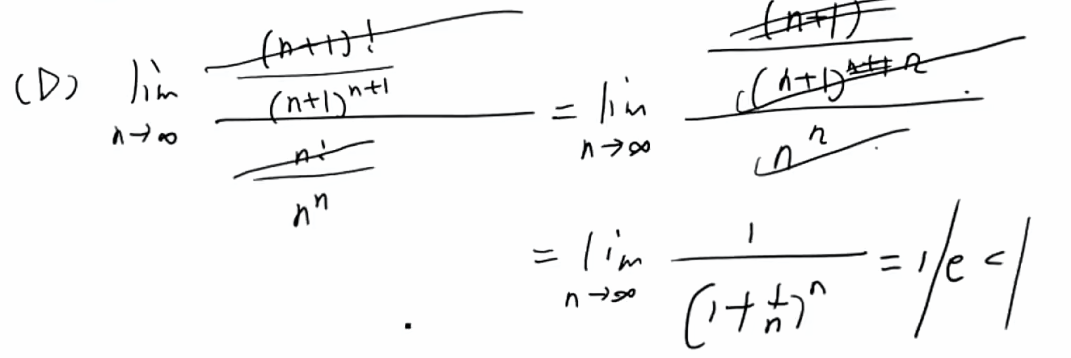 (D) lim_{n→∞} \frac{\frac{(n+1)!}{(n+1)^{n+1}}}{\frac{n!}{n^n}} = lim_{n→∞} \frac{\frac{(n+1)}{(n+1)^{n+1 n}}}{n^n}
= lim_{n→∞} \frac{1}{(1+\frac{1}{n})^n} = 1/e < 1